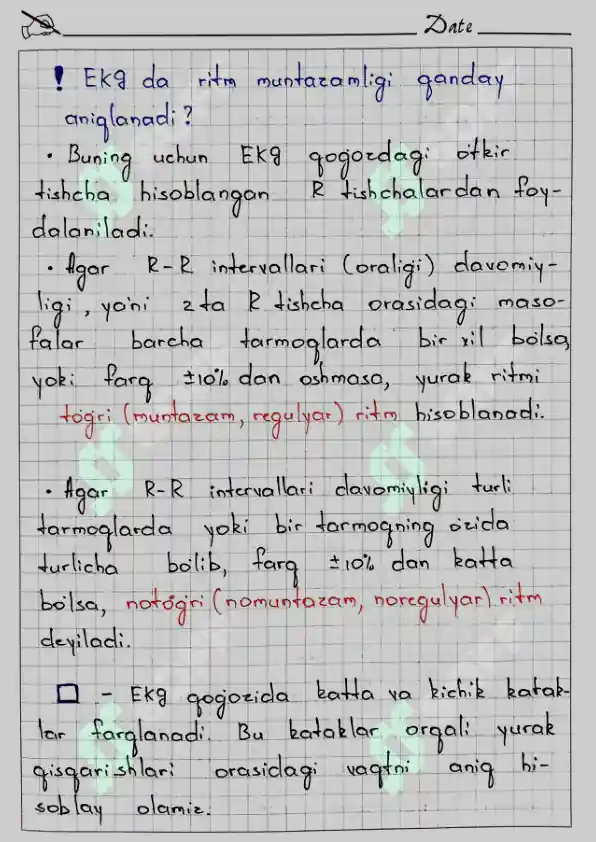 Date
! EKg da ritm muntazamligi qanday
aniqlanadi?
• Buning uchun EKg qogozdagi o'tkir
tishcha hisoblangan R tishchalardan foy-
dalaniladi.
• Agar R-R intervallari (oraligi) davomiy-
ligi, ya'ni 2 ta R tishcha orasidagi maso-
falar barcha tarmoqlarda bir xil bo'lsa,
yoki farq ±10% dan oshmasa, yurak ritmi
to'g'ri (muntazam, regulyar) ritm hisoblanadi.
• Agar R-R intervallari davomiyligi turli
tarmoqlarda yoki bir tarmoqning o'zida
turlicha bo'lib, farq ±10% dan katta
bo'lsa, noto'g'ri (nomuntazam, noregulyar) ritm
deyiladi.
□ - EKg qogozida katta va kichik katak-
lar farqlanadi. Bu kataklar orqali yurak
qisqarishlari orasidagi vaqtni aniq hi-
soblay olamiz.